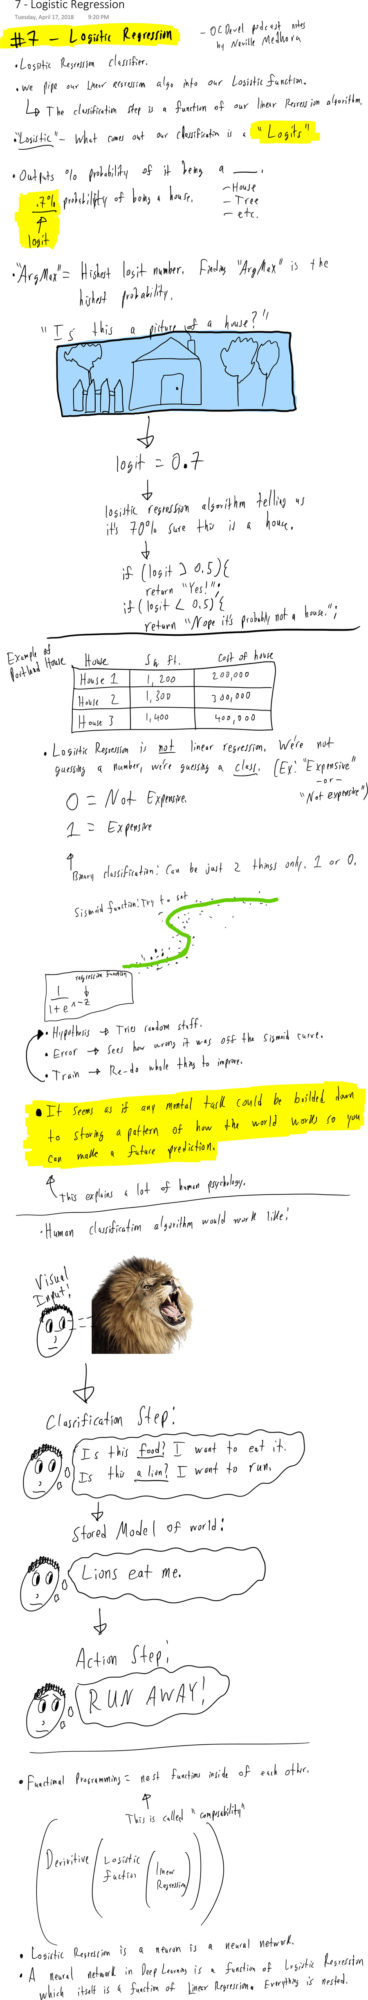 7 - Logistic Regression
Tuesday, April 17, 2018 9:20 PM
#7 - Logistic Regression
- OCDevel podcast notes
by Neville Medhora
• Logistic Regression classifier.
• We pipe our linear regression algo into our Logistic function.
↳ The classification step is a function of our linear Regression algorithm.
• "Logistic" - What comes out our classification is a "Logits"
• Outputs % probability of it being a ___.
- House
- Tree
- etc.
.7% probability of being a house.
↑
logit
• "ArgMax" = Highest logit number. Finding "ArgMax" is the
highest probability.
"Is this a picture of a house?"
logit = 0.7
logistic regression algorithm telling us
it's 70% sure this is a house.
if (logit > 0.5){
return "Yes!";
if (logit < 0.5){
return "Nope it's probably not a house.";
Example of
Portland House
House Sq ft. Cost of house
House 1 1,200 200,000
House 2 1,300 300,000
House 3 1,400 400,000
• Logistic Regression is not linear regression. We're not
guessing a number, we're guessing a class. (Ex: "Expensive"
-or-
"Not expensive")
0 = Not Expensive.
1 = Expensive
Binary classification: Can be just 2 things only. 1 or 0.
Sigmoid function: Try to get
regression function
1
1+e^-z
• Hypothesis → Tries random stuff.
• Error → Sees how wrong it was off the Sigmoid curve.
• Train → Re-do whole thing to improve.
• It seems as if any mental task could be boiled down
to storing a pattern of how the world works so you
can make a future prediction.
This explains a lot of human psychology.
• Human classification algorithm would work like:
Visual
Input:
Classification Step:
Is this food? I want to eat it.
Is this a lion? I want to run.
Stored Model of world:
Lions eat me.
Action Step:
RUN AWAY!
• Functional Programming = nest functions inside of each other.
This is called "composability"
(Derivitive (Logistic Fuction (linear Regression)))
• Logistic Regression is a neuron is a neural network.
• A neural network in Deep Learning is a function of Logistic Regression
which itself is a function of Linear Regression. Everything is nested.